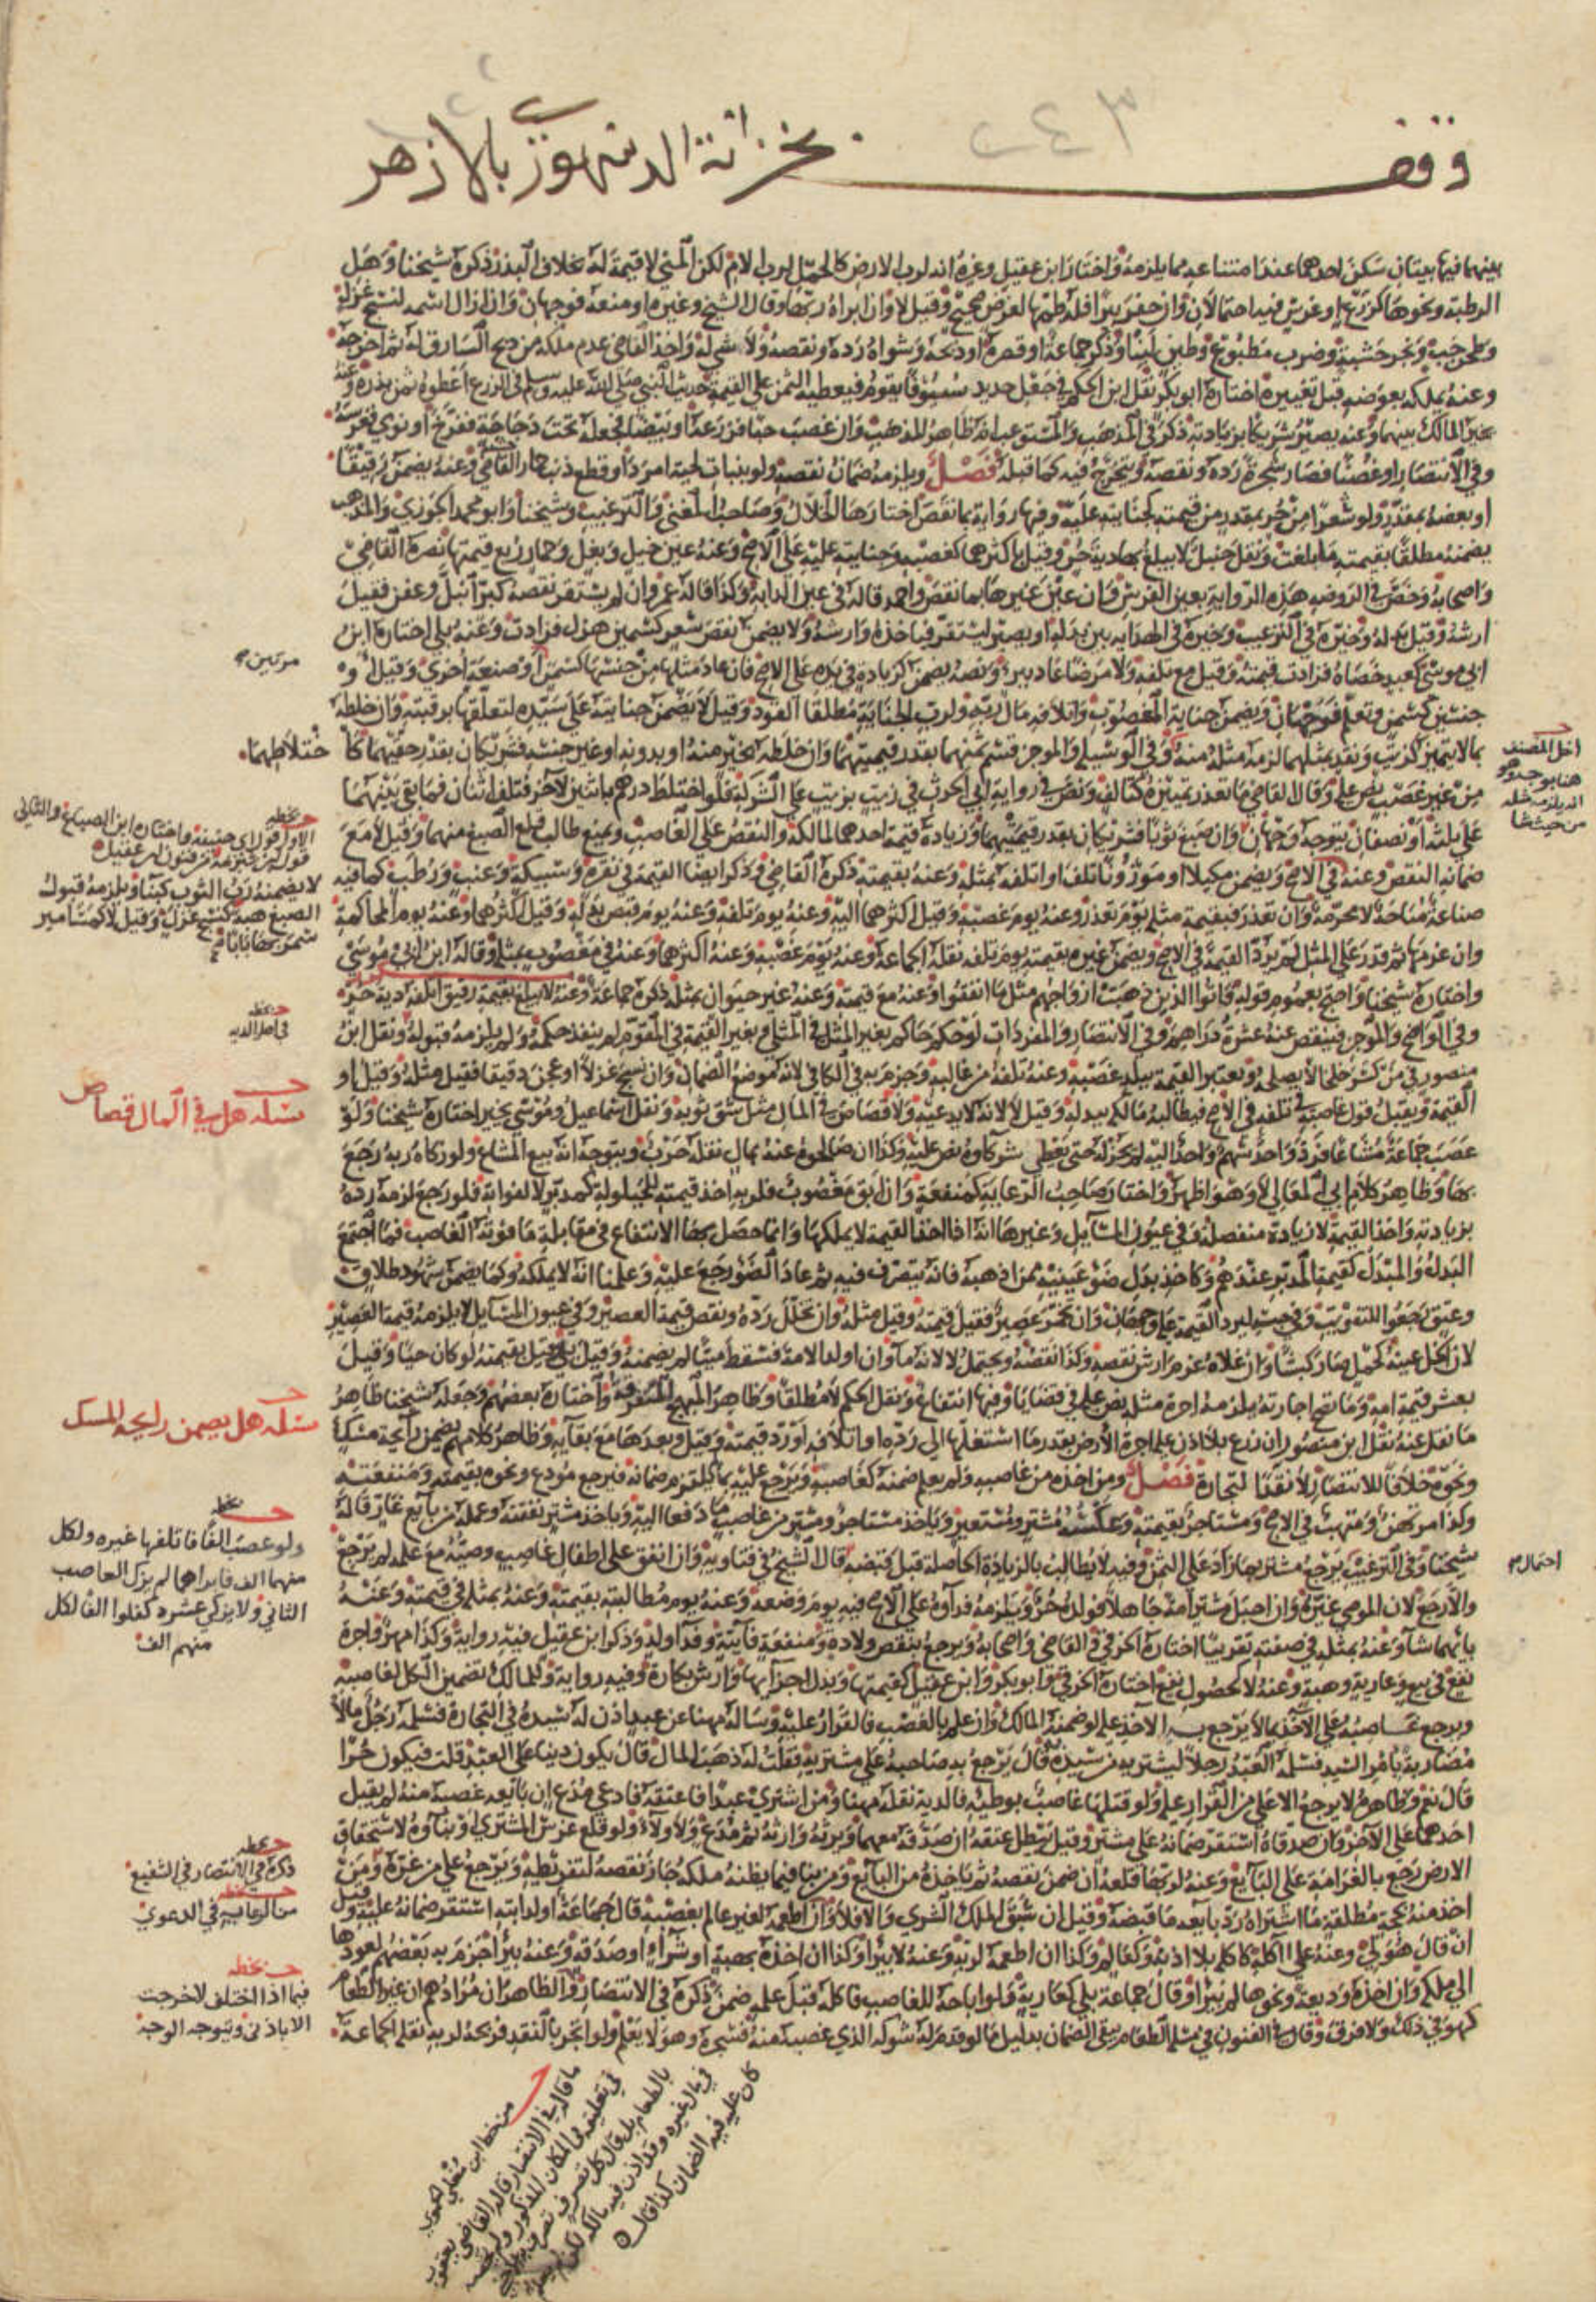 وقف بخزانة الدمنهوري بالازهر
٢٤٣
بينهما فيها بيتان سكن احدهما عند امتناعه مما يلزمه واختار ابن عقيل وغيره انه لرب الارض كالحمل لرب الام لكن المني لا قيمة له بخلاف البذر ذكره شيخنا وهل
الرطبة ونحوها كزرع او غرس فيه احتمالان وان حفر بئرا فله طمها لغرض صحيح وقيل لا وان ابراه ربها وقال الشيخ وغيره او منعه فوجهان وان ازال اسمه كنسج غزل
وطحن حب ونجر خشبة وضرب مطبوع وطين لبنا وذكر جماعة او قصره او ذبحه وشواه رده ونقصه ولا شي له واخذ القاضي عدم ملكه من ذبح السارق له ثم اخرجه
وعنه يملكه بعوضه قبل تغييره اختاره ابو بكر نقل ابن الحكم في جعل حديد سيوفا يقوم فيعطيه الثمن على القيمة حديث النبي صلى الله عليه وسلم في الزرع اعطوه ثمن بذره وعنه
يخير المالك بينهما وعنه يصير شريكا بزيادته ذكر في المذهب والمستوعب انه ظاهر المذهب وان غصب حبا فزرعه او بيضا فجعله تحت دجاجة ففرخ او نوى فغرسه
وفي الانتصار او غصنا فصار شجرة رده ونقصه ويتخرج فيه كما قبله فصل ويلزمه ضمان نقصه ولو بنبات لحية امرد او قطع ذنب حمار القاضي وعنه يضمن رقيقا
او بعضه بمقدر ولو شعرا من حر بمقدر من قيمته كجنايته عليه وفيها رواية بما نقص اختارها الخلال وصاحب المغني والترغيب وشيخنا وابو محمد الجوزي والمذهب
يضمنه مطلقا بقيمته ما بلغت ونقل حنبل لا يبلغ بها دية حر وقيل باكثرهما كغصبه وجنايته عليه على الاصح وعنه عين خيل وبغل وحمار ربع قيمتها نصره القاضي
واصحابه وخص في الروضة هذه الرواية بعين الفرس وان عين غيرها بما نقص واحمد قاله في عين الدابة وكذا قاله عمر وان لم يستقر نقصه كبر ابتل وعفن فقيل
ارشه وقيل بدله وخيره في الترغيب وخيره في الهداية بين بدله او يصبر ليستقر فياخذه وارشه ولا يضمن نقص سعر كسمين هزل فزادت وعنه بلى اختاره ابن
ابي موسى كعبد خصاه فزادت قيمته وقيل مع تلفه ولا مرضا عاد ببرئه ونصه يضمن كزيادة في يده على الاصح فان عاد مثلها من جنسها كسمن او صنعة اخرى وقيل او
جنسين كسمن وتعلم فوجهان ويضمن جناية المغصوب واتلافه مال ربه ولرب الجناية مطلقا القود وقيل لا يضمن جنايته على سيده لتعلقها برقبته وان خلطه
بما لا يتميز كزيت ونقد بمثلهما لزمه مثله منه وفي الوسيلة والموجز قسم ثمنهما بقدر قيمتيهما وان خلطه بخير منه او بدونه او غير جنسه فشريكان بقدر حقيهما كاختلاطهما
من غير غصب نص عليه وقال القاضي ما تعذر تميزه كتالف ونص في رواية ابي الحرث في زيت بزيت على الشركة فلو اختلط درهم باثنين لاخر فتلف اثنان فما بقي بينهما
على ثلثه او نصفان يتوجه وجهان وان صبغ ثوبا فشريكان بقدر قيمتيهما وزيادة قيمة احدهما لمالكه والنقص على الغاصب ويمنع طالب قلع الصبغ منهما وقيل لا مع
ضمانه النقص وعنه في الاصح ويضمن مكيلا او موزونا تلف او اتلفه بمثله وعنه بقيمته ذكره القاضي وذكر ايضا القيمة في نقرة وسبيكة وعنب ورطب كما فيه
صناعة مباحة لا محرمة وان تعذر فبقيمة مثله يوم تعذر وعنه يوم غصبه وقيل اكثرهما اليه وعنه يوم تلفه وعنه يوم قبض بدله وقيل اكثرهما وعنه يوم المحاكمة
وان غرمها ثم قدر على المثل لم يرد القيمة في الاصح ويضمن غيره بقيمته يوم تلفه نقله الجماعة وعنه يوم غصبه وعنه اكثرهما وعنه في مغصوب بمثله وقاله ابن ابي موسى
واختاره شيخنا واحتج بعموم قوله فاتوا الذين ذهبت ازواجهم مثل ما انفقوا وعنه مع قيمته وعنه غير حيوان بمثله ذكره جماعة وعنه لا يبلغ بقيمة رقيق اتلفه دية حر
وفي الواضح والموجز فينقص عنه عشرة دراهم وفي الانتصار والمفردات لو حكم حاكم بغير المثل في المثلي وبغير القيمة في المتقوم لم ينفذ حكمه ولم يلزمه قبوله ونقل ابن
منصور في من كسر خلخالا يصلحه وتعتبر القيمة ببلد غصبه وعنه تلفه من غالبه وجزم به في الكافي لانه موضع الضمان وان نسج غزلا او عجن دقيقا فقيل مثله وقيل او
القيمة ويقبل قول غاصبه في تلفه في الاصح فيطالبه مالكه ببدله وقيل لا لانه لا يدعيه ولا قصاص في المال مثل شق ثوبه ونقل اسماعيل وموسى يخير اختاره شيخنا ولو
غصب جماعة مشاعا فرد واحد سهم واحد اليه لم يجز له حتى يعطي شركاوه نص عليه وكذا ان صالحوه عنه بمال نقله حرب ويتوجه انه بيع المشاع ولو زكاه ربه رجع
بها وظاهر كلام ابي المعالي لا وهو اظهر واختار صاحب الرعاية كمنفعة وان ابق مغصوب فلربه اخذ قيمته للحيلولة كمدبر لا لفواته فلو رجع لزمه رده
بزيادته واخذ القيمة لا زيادة منفصلة وفي عيون المسايل وغيرها انه اذا اخذ القيمة لا يملكها وانما حصل بها الانتفاع في مقابلة ما فوته الغاصب فما اجتمع
البدل والمبدل كقيمة المدبر عندهم وكاخذ بدل ضوء عينيه ممن اذهبه فانه يتصرف فيه ثم عاد الضوء رجع عليه وعلمنا انه لا يملكه وكما يضمن شهود طلاق
وعتق رجعوا للتفويت وفي حبسه ليرد القيمة عليه وجهان وان تخمر عصير فقيل قيمته وقيل مثله وان تخلل رده ونقص قيمة العصير وفي عيون المسايل لا يلزمه قيمة العصير
لان الخل عينه كحمل صار كبشا وان غلاه غرم ارش نقصه وكذا نقصه ويحتمل لا لانه ما وان اولد الامة فسقط ميتا لم يضمنه وقيل بلى قيل بقيمته لو كان حيا وقيل
بعشر قيمة امه وما تصح اجارته يلزمه اجرة مثله نص عليه في قضايا وفيها انتفاع ونقل ابن الحكم لا مطلقا وظاهر المبهج التفرقة واختاره بعضهم وجعله شيخنا ظاهر
ما نقل عنه نقل ابن منصور ان زرع بلا اذن عليه اجرة الارض بقدر ما استغلها الى رده او اتلافه او رد قيمته وقيل وبعدها مع بقايه وظاهر كلامهم يضمن رايحة مسك
ونحوه خلافا للانتصار لا نقدا لتجارة فصل ومن اخذه من غاصبه ولم يعلم ضمنه كغاصبه ويرجع عليه بما لم يلتزم ضمانه فيرجع مودع ونحوه بقيمته ومنفعته
وكذا مرتهن ومتهب في الاصح ومستاجر بقيمته وعكسه مشتر ومستعير وياخذ مستاجر ومشتر من غاصب ما دفعا اليه وياخذ مشتر نفقته وعمله من بايع غار قاله
شيخنا وفي الترغيب يرجع مشتر بما زاد على الثمن وفيه لا يطالب بالزيادة الحاصلة قبل قبضه قال الشيخ في فتاويه وان انفق على اطفال غاصب وصيه مع علمه لم يرجع
والا رجع لان الموصي غره وان احبل مشتر امة جاهلا فولده حر ويلزمه فداوه على الاصح فيه يوم وضعه وعنه يوم مطالبته بقيمته وعنه بمثله في قيمته وعنه
بايهما شاء وعنه بمثله في صفته تقريبا اختاره الخرقي والقاضي واصحابه ويرجع بنقص ولادة ومنفعة فايتة وفدا ولد وذكر ابن عقيل فيه رواية وكذا مهر واجرة
نفع في بيع وعارية وهبة وعنه لا لحصول نفع اختاره الخرقي وابو بكر وابن عقيل كقيمتها وبدل اجزايها وارش بكارة وفيه رواية وللمالك تضمين الكل لغاصبه
ويرجع غاصبه على الآخذ بما لا يرجع به الاخذ عليه لو ضمنه المالك وان علم بالغصب فالقرار عليه وساله مهنا عن عبد اذن له سيده في التجارة فسلمه رجل مالا
مضاربة بامر السيد فسلمه العبد رجلا ليشتريه من سيده قال يرجع به صاحبه على مشتريه فقلت له ذهب المال قال يكون دينا على العبد قلت فيكون حرا
قال نعم وظاهره لا يرجع الاعلى من القرار عليه ولو قتلها غاصب بوطيه فالدية نقله مهنا ومن اشترى عبدا فاعتقه فادعى مدع ان بايعه غصبه منه لم يقبل
احدهما على الاخر وان صدقاه استقر ضمانه على مشتر وقيل يبطل عتقه ان صدقه معهما ويرثه وارثه ثم مدع ولا ولاء ولو قلع غرس المشتري او بناوه لاستحقاق
الارض رجع بالغرامة على البايع وعنه لربها قلعه ان ضمن نقصه ثم ياخذه من البايع ومن بنا فيما يظنه ملكه جاز نقصه لتفريطه ويرجع على من غره ومن
اخذ منه بحجة مطلقة ما اشتراه رد بايعه ما قبضه وقيل ان سبق الملك الشرى والا فلا وان اطعمه لغير عالم بغصبه قال جماعة او لدابته استقر ضمانه عليه وقيل
ان قال هو لي وعنه على آكله كاكله بلا اذنه وكعالم وكذا ان اطعمه لربه وعنه لا يبرا وكذا ان اخذه بهبة او شراء او صدقة وعنه يبرا جزم به بعضهم لعودها
الى ملكه وان اخذه وديعة ونحوها لم يبرا وقال جماعة بلى كعارية فلو اباحه للغاصب فاكله قبل علمه ضمن ذكره في الانتصار والظاهر ان مرادهم ان غير الطعام
كهو في ذلك ولا فرق وقال في الفنون في مسلة الطعام يبقى الضمان بدليل ما لو قدم له شوكه الذي غصبه منه فسجره وهو لا يعلم ولو اتجر بالنقد فربحه لربه نقله الجماعة
مرتين
اخل المصنف
هنا بوجه وهو
انه يلزمه مثله
من حيث شا
بخطه
الاول قول ابي حنيفة واختاره ابن الصباغ والثاني
لا يضمنه رب الثوب كبنا ويلزمه قبول
الصبغ هبة كنسج غزل وقيل لا كمسامير
سمر بها بابا
بخطه
في اصله الدية
مسلة هل في المال قصاص
مسلة هل يضمن رايحة المسك
بخطه
ولو غصب الفا فاتلفها غيره ولكل
منهما الف فابراهما لم يزك الغاصب
الثاني ولا يزكي عشرة كفلوا الفا لكل
منهم الف
احتمال
بخطه
ذكره في الانتصار في الشفيع
بخطه
من الرعاية في الدعوى
بخطه
فيما اذا اختلف لاخرجت
الا باذني ويتوجه الوجه
من خط ابن مغلي
ما قاله في الانتصار قاله القاضي يعقوب
في تعليقه في المكان المذكور
في مال غيره وقد اذن فيه مالكه
كان عليه فيه الضمان كذا قال